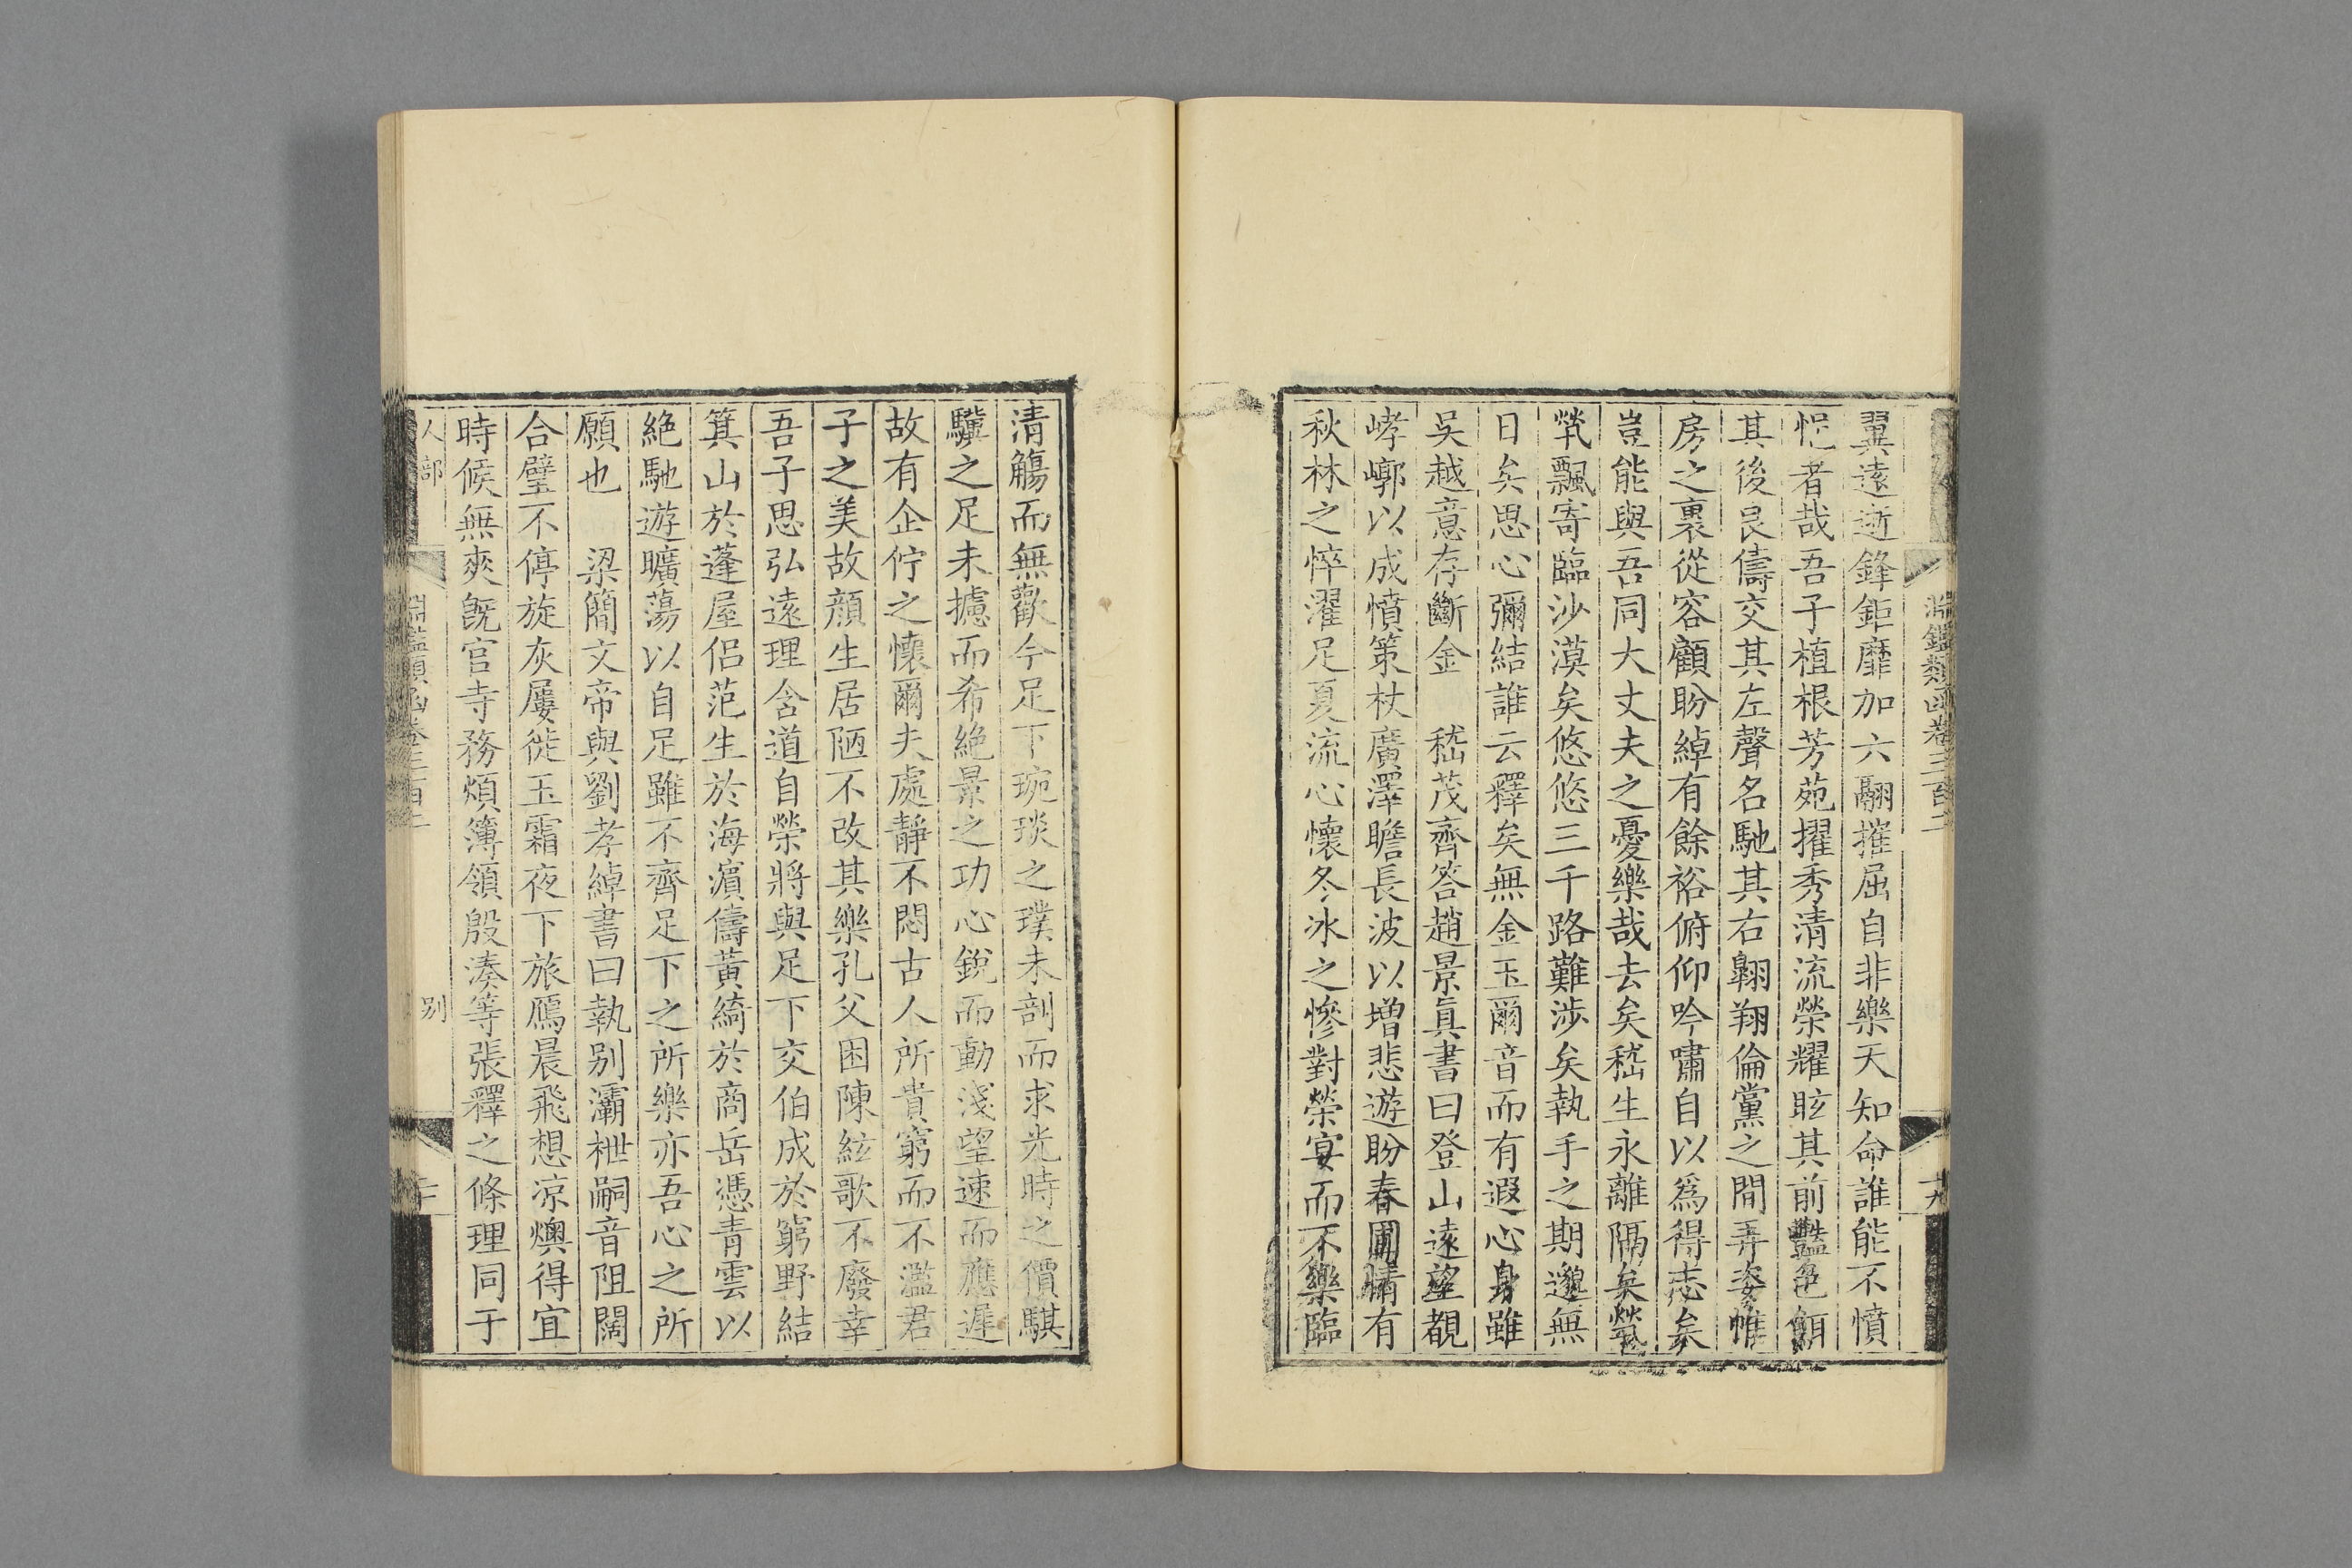 淵鑑類函卷三百二
翼遠逝鋒鉅靡加六翮摧屈自非樂天知命誰能不憤
悒者哉吾子植根芳苑擢秀清流榮耀眩其前艷色餌
其後良儔交其左聲名馳其右翺翔倫黨之間弄姿帷
房之裏從容顧盼綽有餘裕俯仰吟嘯自以爲得志矣
豈能與吾同大丈夫之憂樂哉去矣嵇生永離隔矣煢
煢飄寄臨沙漠矣悠悠三千路難涉矣執手之期邈無
日矣思心彌結誰云釋矣無金玉爾音而有遐心身雖
吳越意存斷金 嵇茂齊答趙景眞書曰登山遠望覩
崝嶸以成憤策杖廣澤瞻長波以增悲遊盼春圃情有
秋林之悴濯足夏流心懷冬冰之慘對榮宴而不樂臨
清觴而無歡今足下琬琰之璞未剖而求光時之價騏
驥之足未攄而希絶景之功心銳而動淺望速而應遲
故有企佇之懷爾夫處靜不悶古人所貴窮而不濫君
子之美故顔生居陋不改其樂孔父困陳絃歌不廢幸
吾子思弘遠理含道自榮將與足下交伯成於窮野結
箕山於蓬屋侣范生於海濵儔黃綺於商岳憑青雲以
絶馳遊曠蕩以自足雖不齊足下之所樂亦吾心之所
願也 梁簡文帝與劉孝綽書曰執别灞𣐈嗣音阻闊
合璧不停旋灰屢徙玉霜夜下旅鴈晨飛想凉燠得宜
時候無爽旣官寺務煩簿領殷湊等張釋之條理同于
人部
淵鑑類函卷三百二
别